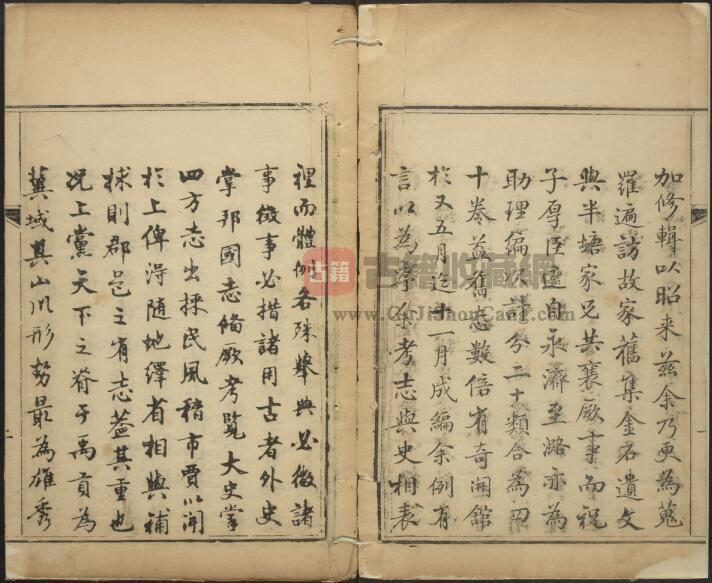 加修輯以昭来兹余乃更為蒐
羅遍訪故家舊集金石遺文
與半塘家兄共襄厥事而祝
子厚臣適自永濟至潞亦為
助理編次計分二十類合為四
十卷益舊志數倍有奇開館
於又五月迄十一月成編余例有
言以為序余考志與史相表
裡而體例各殊舉典必徵諸
事徵事必措諸用古者外史
掌邦國志備厥考覧大史掌
四方志出採民風稽市賈以聞
於上俾淂随地繹省相與補
捄則郡邑之有志葢其重也
况上黨天下之脊于禹貢為
冀域其山川形勢最為雄秀
古籍
古籍收藏網
www.GuJiShouCang.Com